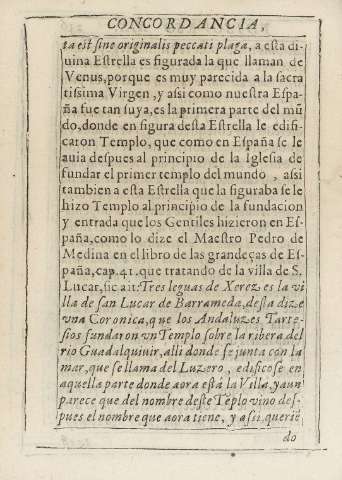 CONCORDANCIA,
ta est sine originalis peccati plaga, a esta di-
uina Estrella es figurada la que llaman de
Venus, porque es muy parecida a la sacra
tissima Virgen, y assi como nuestra Espa-
ña fue tan suya, es la primera parte del mũ
do, donde en figura desta Estrella le edifi-
caron Templo, que como en España se le
auia despues al principio de la Iglesia de
fundar el primer templo del mundo, assi
tambien a esta Estrella que la figuraba se le
hizo Templo al principio de la fundacion
y entrada que los Gentiles hizieron en Es-
paña, como lo dize el Maestro Pedro de
Medina en el libro de las grandeças de Es-
paña, cap. 41. que tratando de la villa de S.
Lucar, sic ait: Tres leguas de Xerez es la vi
lla de san Lucar de Barrameda, desta dize
vna Coronica, que los Andaluzes Tarte-
sios fundaron vn Templo sobre la ribera del
rio Guadalquiuir, alli donde se junta con la
mar, que se llama del Luzero, edificose en
aquella parte donde aora está la Villa, y aun
parece que del nombre deste Tẽplo vino des-
pues el nombre que aora tiene, y assi queriẽ
do